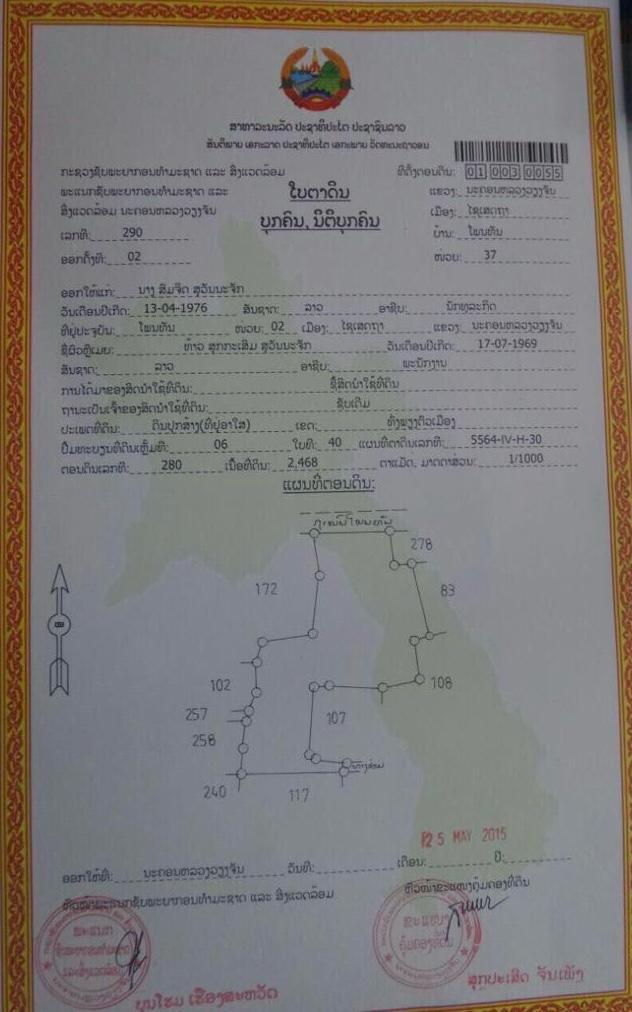 ສາທາລະນະລັດ ປະຊາທິປະໄຕ ປະຊາຊົນລາວ
ສັນຕິພາບ ເອກະລາດ ປະຊາທິປະໄຕ ເອກະພາບ ວັດທະນະຖາວອນ
ກະຊວງຊັບພະຍາກອນທຳມະຊາດ ແລະ ສິ່ງແວດລ້ອມ
ທີ່ຕັ້ງຕອນດິນ: 01 003 0055
ພະແນກຊັບພະຍາກອນທຳມະຊາດ ແລະ
ໃບຕາດິນ
ແຂວງ: ນະຄອນຫລວງວຽງຈັນ
ສິ່ງແວດລ້ອມ ນະຄອນຫລວງວຽງຈັນ
ບຸກຄົນ, ນິຕິບຸກຄົນ
ເມືອງ: ໄຊເສດຖາ
ເລກທີ: 290
ບ້ານ: ໂພນທັນ
ອອກຄັ້ງທີ: 02
ໜ່ວຍ: 37
ອອກໃຫ້ແກ່: ນາງ ສິມຈິດ ສຸວັນນະຈັກ
ວັນເດືອນປີເກີດ: 13-04-1976 ສັນຊາດ: ລາວ ອາຊີບ: ນັກທຸລະກິດ
ທີ່ຢູ່ປະຈຸບັນ: ໂພນທັນ ໜ່ວຍ: 02 ເມືອງ: ໄຊເສດຖາ ແຂວງ: ນະຄອນຫລວງວຽງຈັນ
ຊື່ຜົວຫຼືເມຍ: ທ້າວ ສຸກກະເສີມ ສຸວັນນະຈັກ ວັນເດືອນປີເກີດ: 17-07-1969
ສັນຊາດ: ລາວ ອາຊີບ: ພະນັກງານ
ການໄດ້ມາຂອງສິດນຳໃຊ້ທີ່ດິນ: ຊື້ສິດນຳໃຊ້ທີ່ດິນ
ຖານະເປັນເຈົ້າຂອງສິດນຳໃຊ້ທີ່ດິນ: ຊັບເດີມ
ປະເພດທີ່ດິນ: ດິນປຸກສ້າງ(ທີ່ຢູ່ອາໄສ) ເຂດ: ທົ່ງພຽງຕົວເມືອງ
ປຶ້ມທະບຽນທີ່ດິນເຫຼັ້ມທີ: 06 ໃບທີ: 40 ແຜນທີ່ຕາດິນເລກທີ: 5564-IV-H-30
ຕອນດິນເລກທີ: 280 ເນື້ອທີ່ດິນ: 2,468 ຕາແມັດ, ມາດຕາສ່ວນ: 1/1000
ແຜນທີ່ຕອນດິນ:
278
172
83
102
108
257
107
258
ທາງຄອມ
240
117
25 MAY 2015
ອອກໃຫ້ທີ່: ນະຄອນຫລວງວຽງຈັນ ວັນທີ: ເດືອນ: ປີ:
ຫົວໜ້າພະແນກຊັບພະຍາກອນທຳມະຊາດ ແລະ ສິ່ງແວດລ້ອມ
ຫົວໜ້າຂະແໜງຄຸ້ມຄອງທີ່ດິນ
ພະແນກ
ຊັບພະຍາກອນທຳມະຊາດ
ແລະສິ່ງແວດລ້ອມ
ຂະແໜງ
ຄຸ້ມຄອງທີ່ດິນ
ບຸນໂຮມ ເຮືອງສະຫວັດ
ສຸກປະເສີດ ຈັນເພັງ